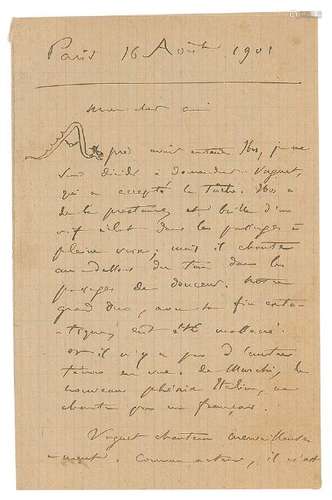 Paris 16 Août 1901
mon cher ami
Après avoir entendu Ibos, je me
suis décidé à demander Vaguet,
qui a accepté la tâche. Ibos a
de la prestance, et brille d'un
vif éclat dans les passages à
pleine voix; mais il chante
au-dessous du ton dans les
passages de douceur. Notre
grand duo, avec sa fin
eut été massacré.
Or il n'y a pas d'autres
ténors en vue. de Marchi, le
nouveau phénix Italien, ne
chante pas en français.
Vaguet chantera merveilleuse-
ment. Comme acteur, il n'est